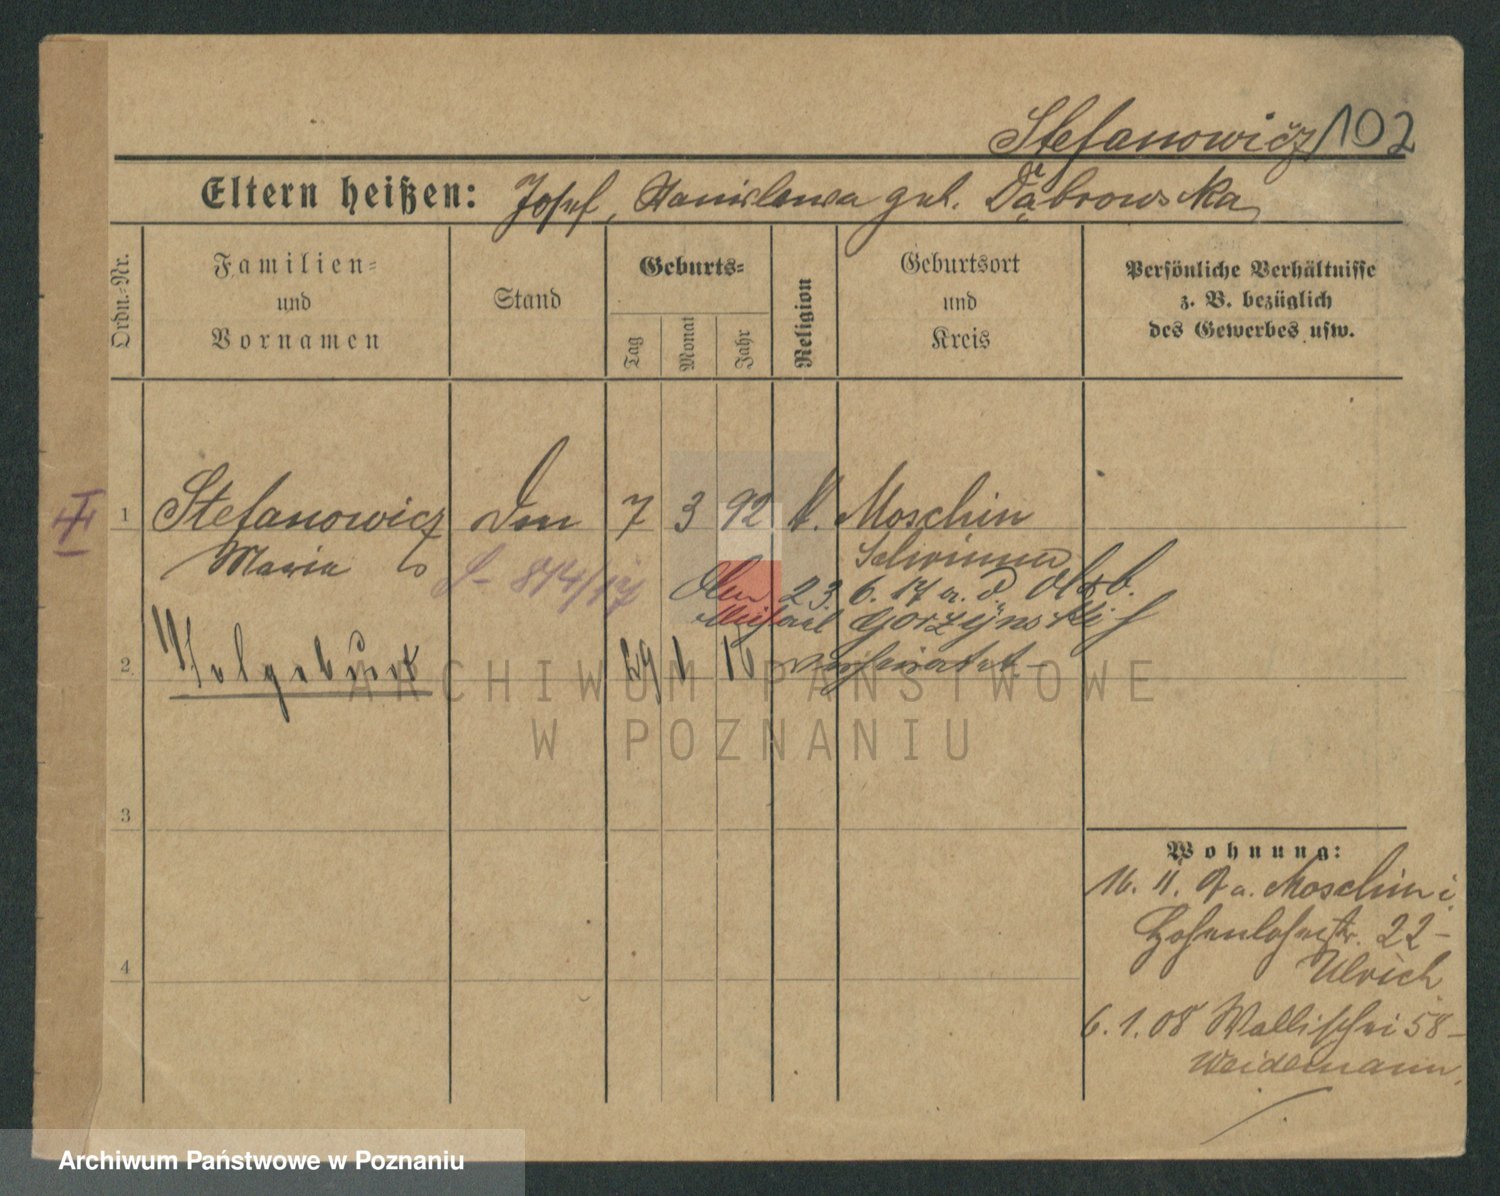 Stefanowicz 102
Eltern heißen: Josef, Stanislawa geb. Dąbrowska
Ordn.-Nr.
Familien-
und
Vornamen
Stand
Geburts-
Tag
Monat
Jahr
Religion
Geburtsort
und
Kreis
Persönliche Verhältnisse
z. B. bezüglich
des Gewerbes usw.
1 Stefanowicz 7 3 92 K. Moschin
Maria Schrimm
23. 6. 17 a. d.
Michael Gorzynski
2 Totgeburt verheiratet
3
4
Wohnung:
16. 11. 07 a. Moschin i.
Hohenlohestr. 22 -
Ulrich
6. 1. 08 Wallischei 58 -
Weidemann.
ARCHIWUM PAŃSTWOWE
W POZNANIU
Archiwum Państwowe w Poznaniu